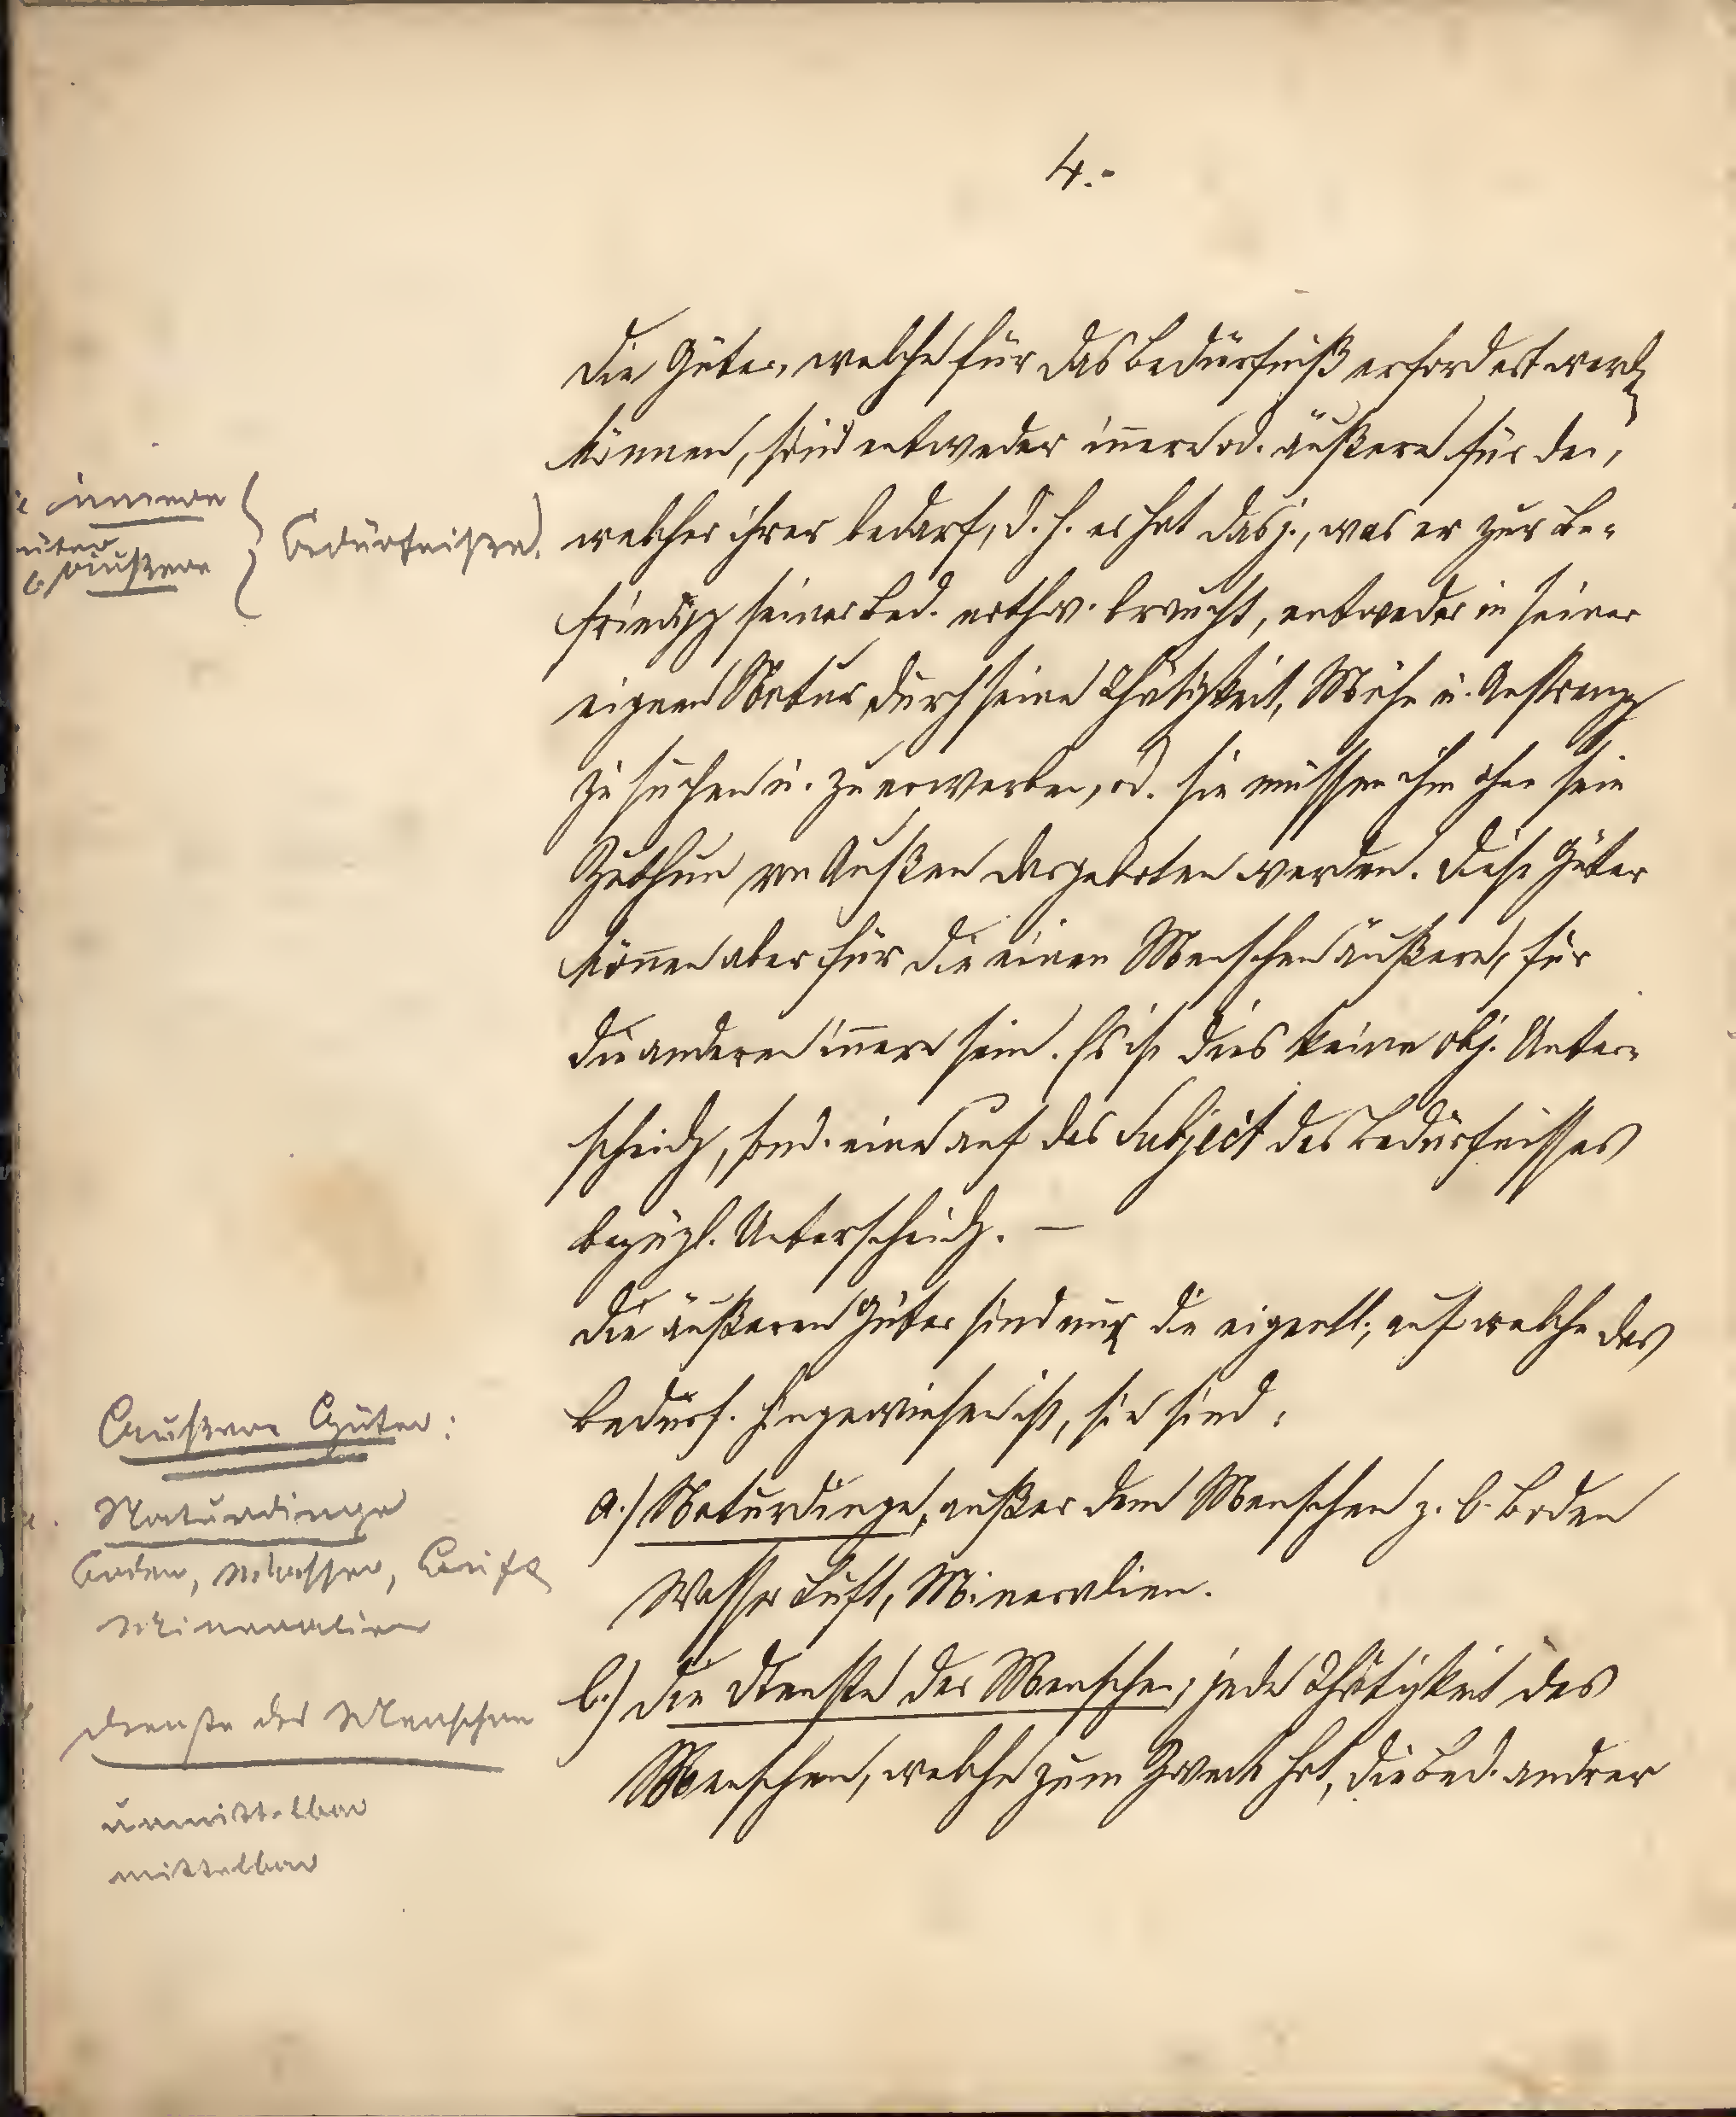 4.-
Die Güter, welche für das Bedürfniß erfordert werd
können, sind entweder innere od. äußere für den,
welcher ihrer bedarf, d. h. er hat dasj., was er zur Be-
friedigg seiner Bed. nothw. braucht, entweder in seiner
eignen Natur durch seine Thätigkeit, Mühe u. Anstrengg
zu suchen u. zu erwerben, od. sie müssen ihm ohne sein
Zuthun von Außen dargeboten werden. Diese Güter
können aber für die einen Menschen äußere, für
die anderen innere sein. Es ist dies keine obj. Unter-
scheidg, sond. eine auf das Subject des Bedürfnisses
bezügl. Unterscheidg. —
Die äußeren Güter sind nur die eigentl., auf welche das
Bedürf. hingewiesen ist, sie sind:
a.) Naturdinge, außer dem Menschen z. b. Boden
Wasser Luft, Mineralien.
b.) die Dienste der Menschen, jede Thätigkeit des
Menschen, welche zum Zweck hat, die Bed. andrer
innere
äußere
Bedürfniße.
Äußere Güter:
Naturdinge
Boden, Wasser, Luft
Mineralien
Dienste der Menschen
unmittelbar
mittelbar